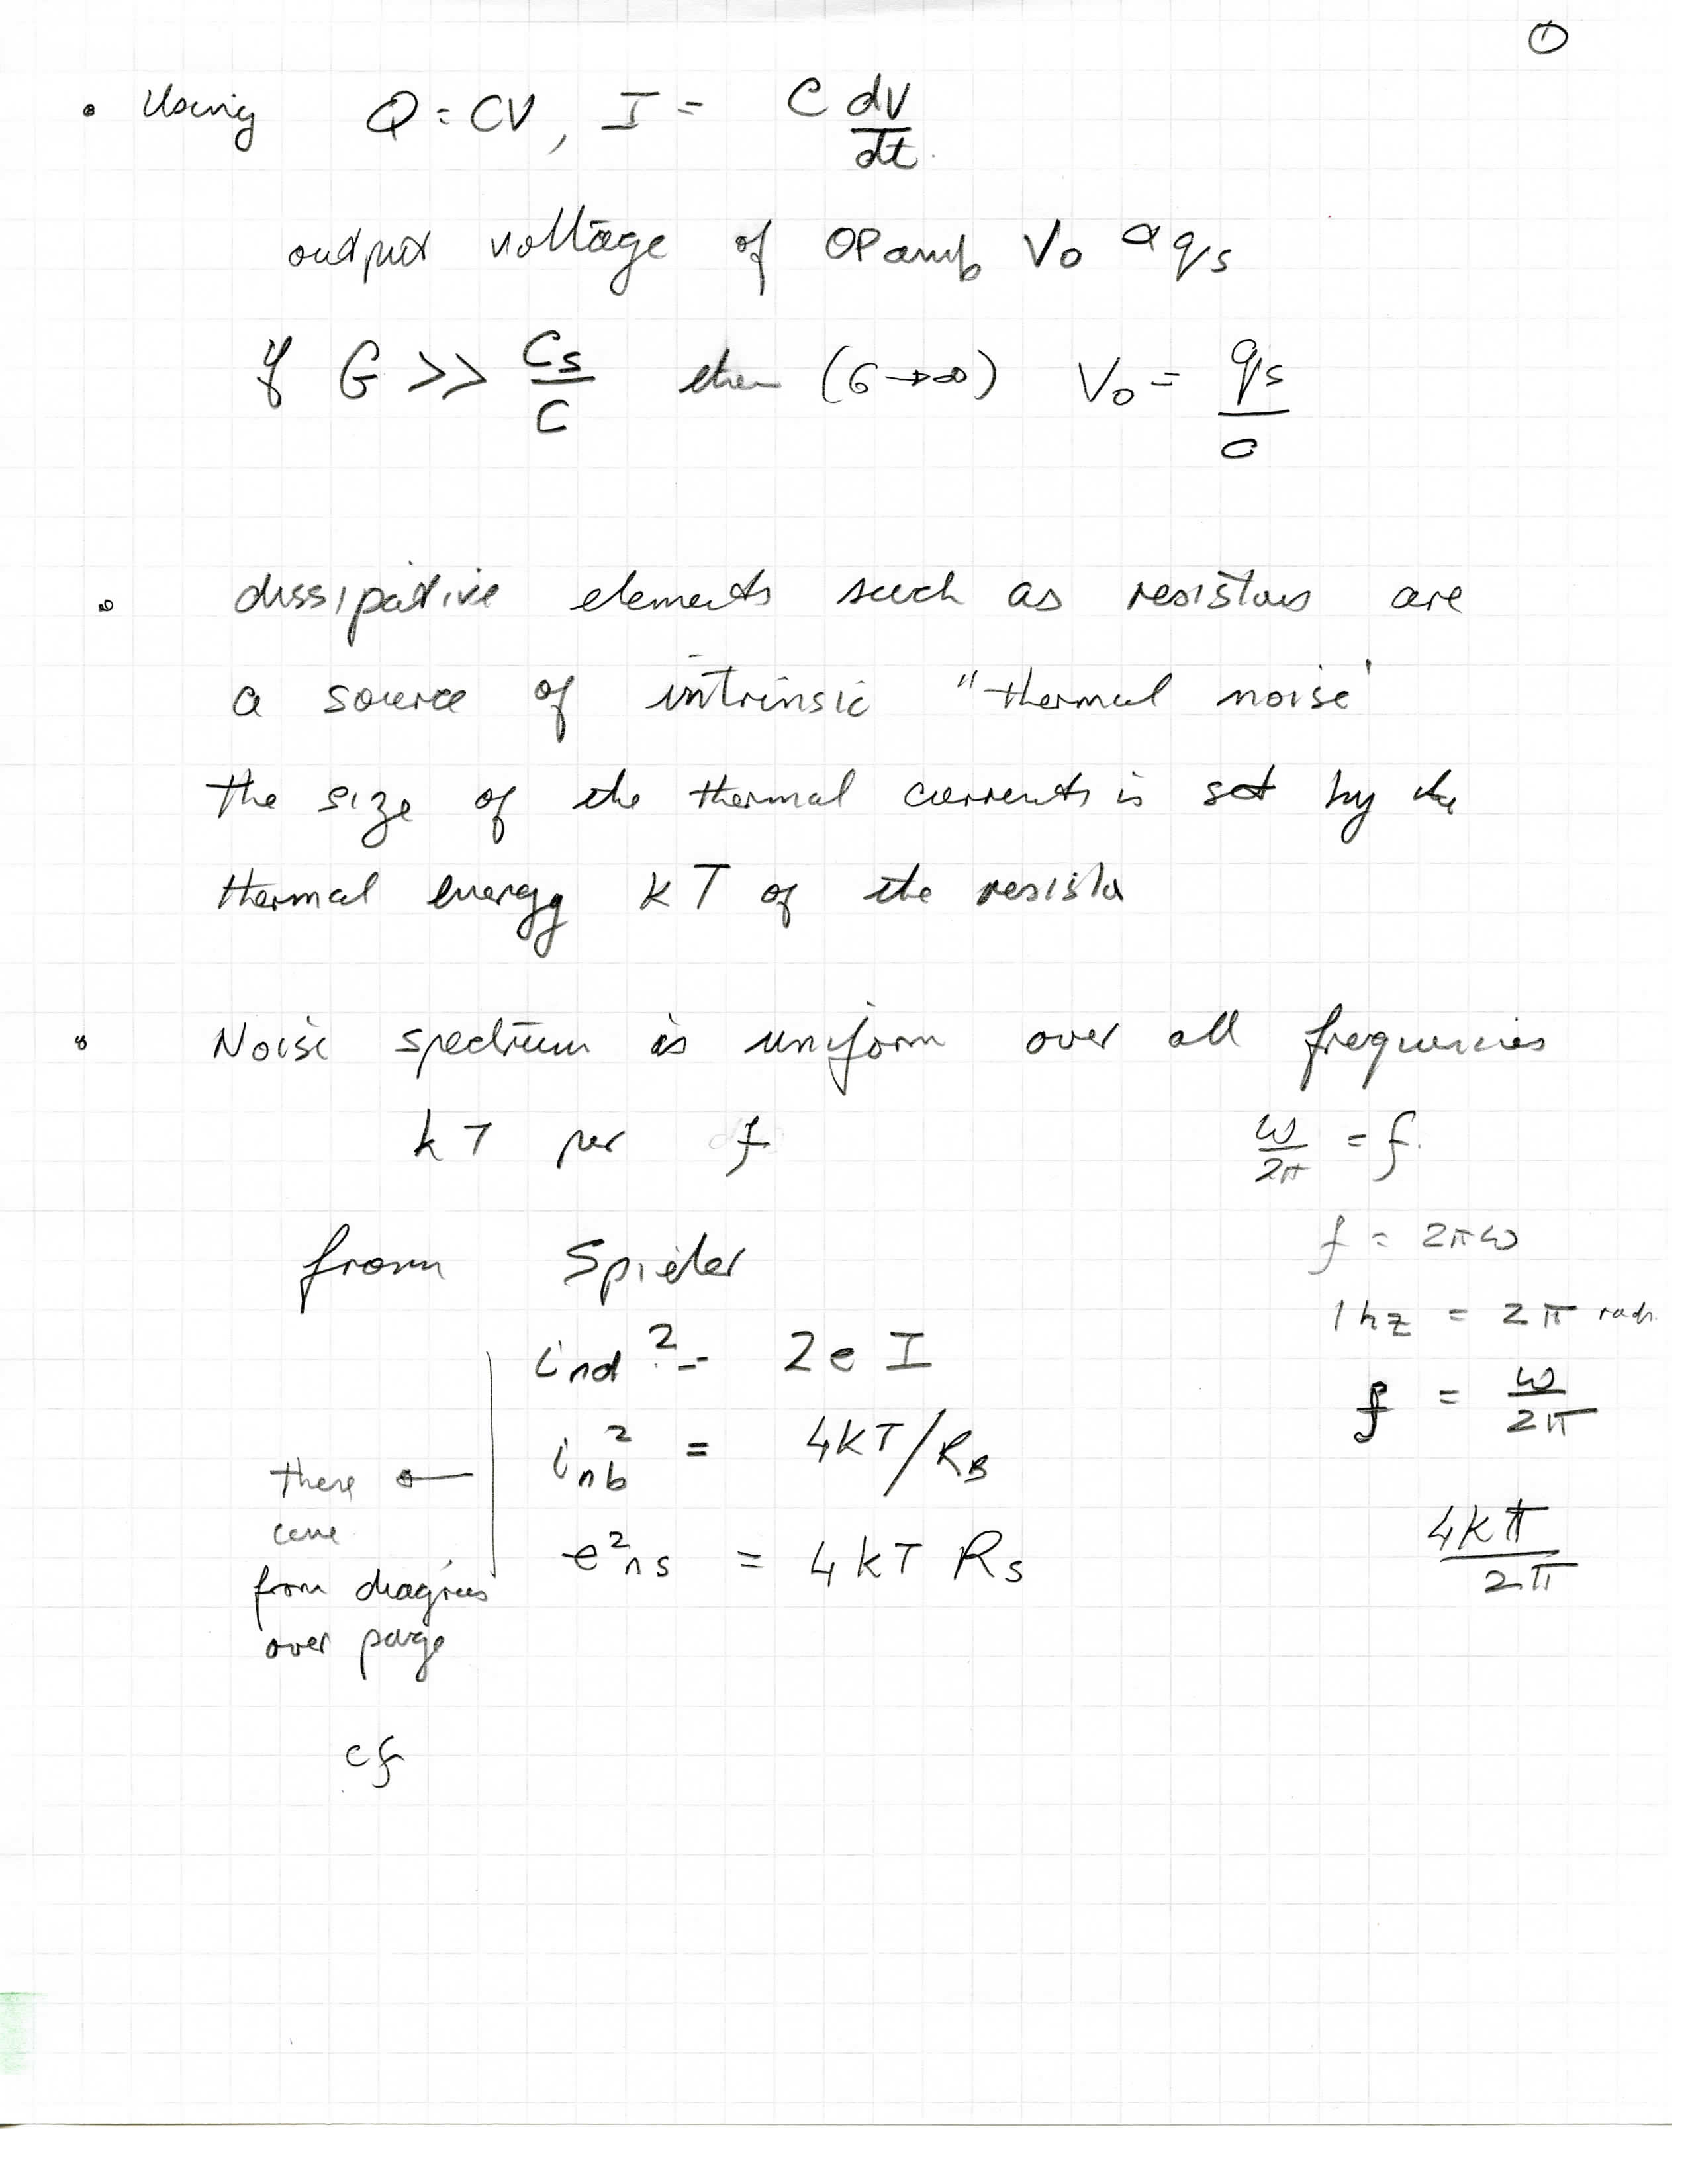 ①
• Using Q = CV, I = C dV/dt
output voltage of OPamp Vo α qs
if G >> Cs/C then (G → ∞) Vo = qs/C
• dissipative elements such as resistors are
a source of intrinsic "thermal noise'
the size of the thermal currents is set by the
thermal energy kT of the resistor
• Noise spectrum is uniform over all frequencies
kT per f
ω/2π = f.
from Spieler
f = 2πω
1hz = 2π rads.
ind² = 2eI
f = ω/2π
inb² = 4kT/RB
e²ns = 4kT Rs
4kπ/2π
there ←
come
from diagrams
over page
cf